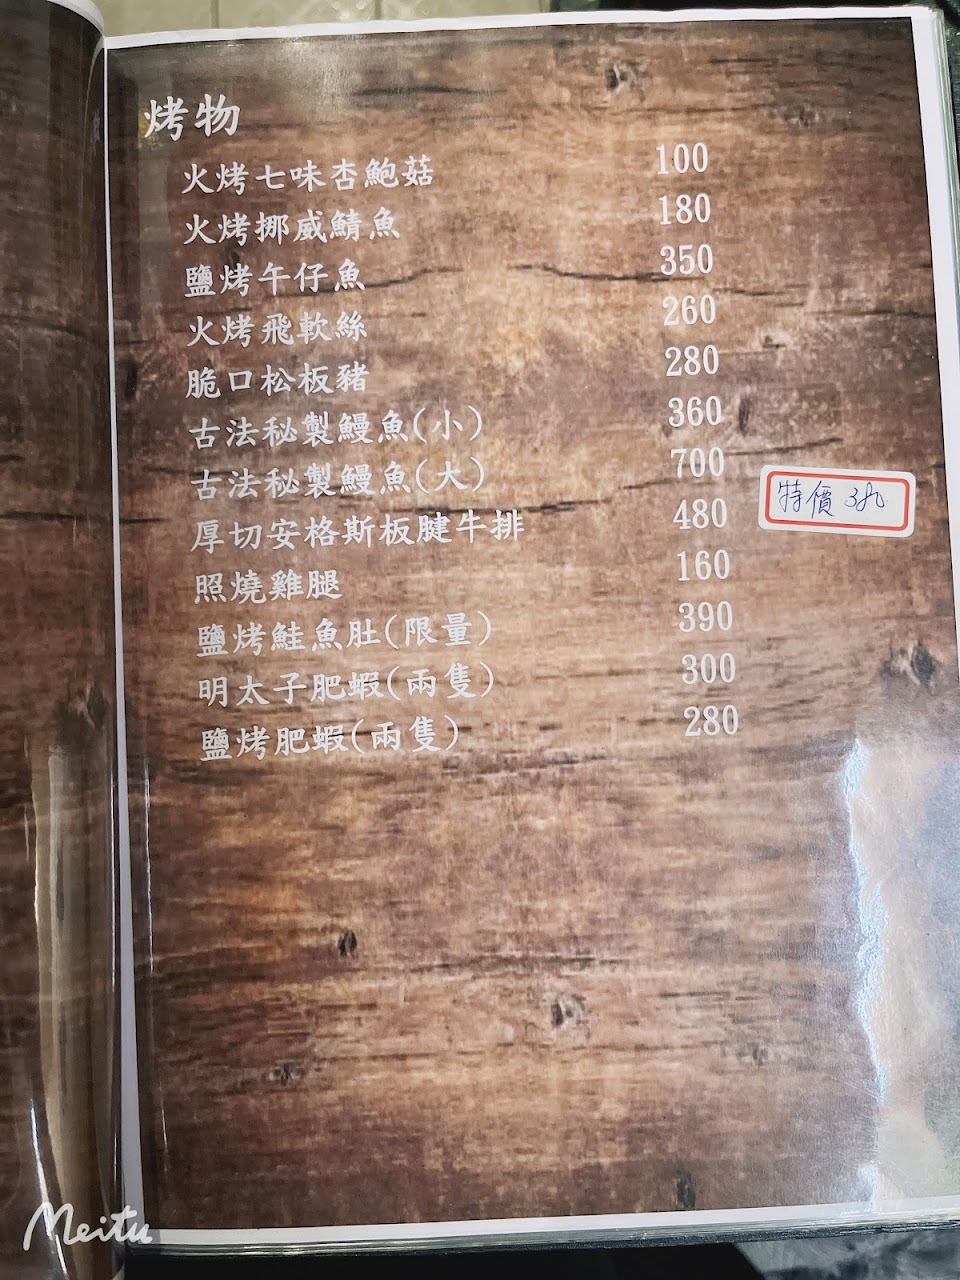 烤物
火烤七味杏鮑菇 100
火烤挪威鯖魚 180
鹽烤午仔魚 350
火烤飛軟絲 260
脆口松板豬 280
古法秘製鰻魚(小) 360
古法秘製鰻魚(大) 700
厚切安格斯板腱牛排 480
特價
照燒雞腿 160
鹽烤鮭魚肚(限量) 390
明太子肥蝦(兩隻) 300
鹽烤肥蝦(兩隻) 280
Meitu